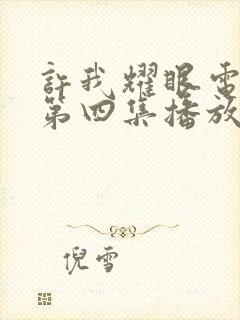 許我耀眼電
第四集播放
倪雪